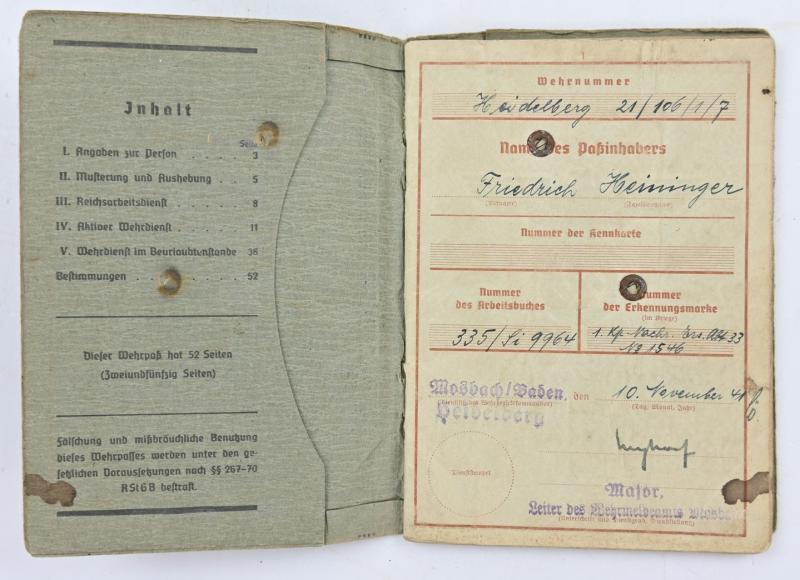 Inhalt
Seite
I. Angaben zur Person . . . . 3
II. Musterung und Aushebung . . . 5
III. Reichsarbeitsdienst . . . . . 8
IV. Aktiver Wehrdienst . . . . . 11
V. Wehrdienst im Beurlaubtenstande 36
Bestimmungen . . . . . . . 52
Dieser Wehrpaß hat 52 Seiten
(Zweiundfünfzig Seiten)
Fälschung und mißbräuchliche Benutzung
dieses Wehrpasses werden unter den ge-
setzlichen Voraussetzungen nach §§ 267-70
RStGB bestraft.
Wehrnummer
Heidelberg 21/106/1/7
Name des Paßinhabers
Friedrich Heininger
(Vorname) (Familienname)
Nummer der Kennkarte
Nummer
des Arbeitsbuches
335/Si 9964
Nummer
der Erkennungsmarke
(im Kriege)
1. Kp. Nachr. Ers. Abt. 33
No 1546
Mosbach/Baden, den 10. November 41
(Tag, Monat, Jahr)
Heidelberg
Dienststempel
Major,
Leiter des Wehrmeldeamts Mosba
(Unterschrift und Dienstgrad, Dienststellung)